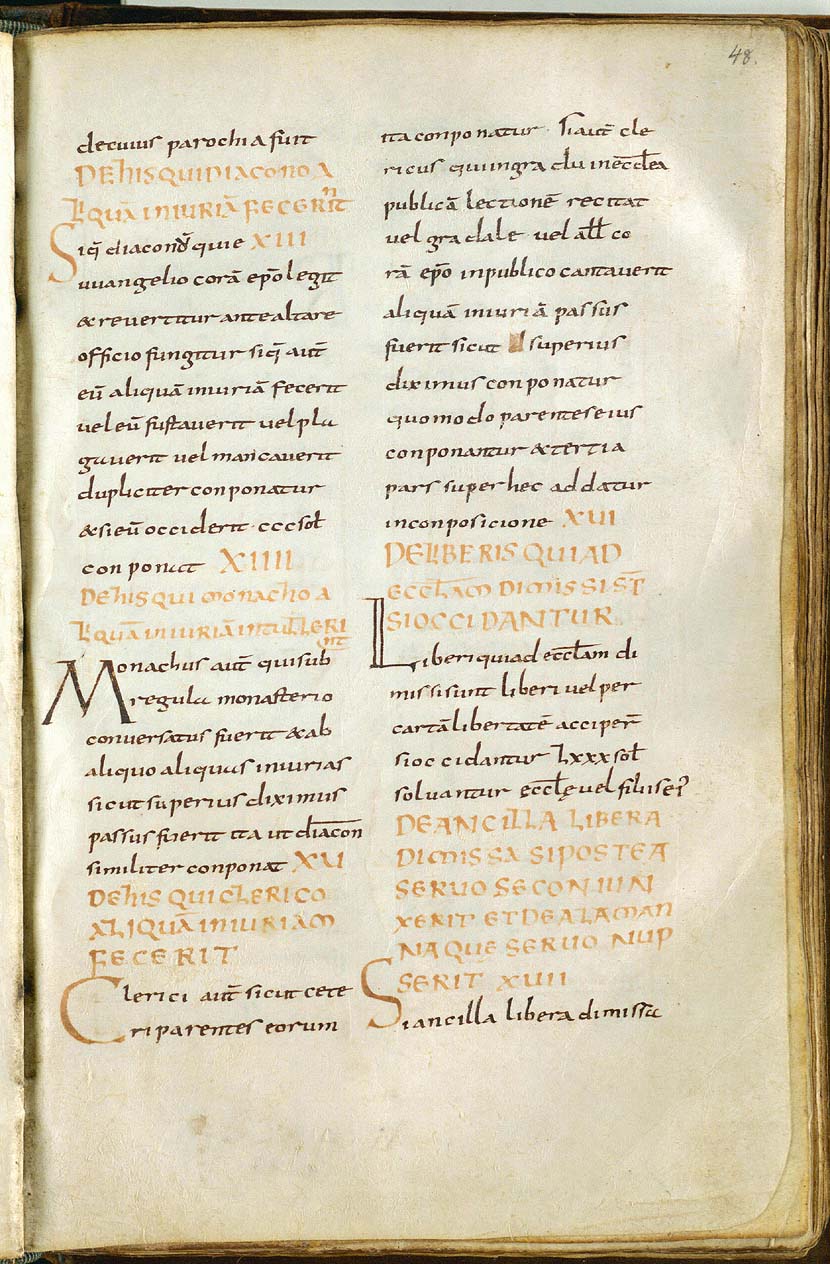 48.
decuius parochia fuit
DEHIS QUI DIACONO A
LIQUĀ INIURIĀ FECERIN̄T
Siq̄ diacon̄ qui e XIII
uuangelio corā ep̄o legit
& revertitur ante altare
officio fungitur siq̄ aut̄
eū aliquā iniuriā fecerit
vel eū fustaverit vel pla
gaverit vel mancaverit
dupliciter conponatur
& si eū occiderit ccc sol̄
conponat XIIII
DEHIS QUI MONACHO A
LIQUĀ INIURIĀ INTULLERI
NT
Monachus aut̄ qui sub
regula monasterio
conversatus fuerit & ab
aliquo aliquas iniurias
sicut superius diximus
passus fuerit ita ut diācon
similiter conponat XV
DEHIS QUI CLERICO
ALIQUĀ INIURIAM
FECERIT
Clerici aut̄ sicut cete
ri parentes eorum
ita conponatur Si aut̄ cle
ricus qui in gradu in ecc̄lea
publicā lectionē recitat
vel gradale vel all̄ co
rā ep̄o in publico cantaverit
aliquā iniuriā passus
fuerit sicut superius
diximus conponatur
quomodo parentes eius
conponantur & tertia
pars super hec addatur
in conposicione XVI
DE LIBERIS QUI AD
ECCL̄AM DIMISSI ST̄
SI OCCIDANTUR
Liberi qui ad eccl̄am di
missi sunt liberi vel per
cartā libertatē acciper̄
si occidantur lxxx sol̄
solvantur eccl̄ę vel filiis ei᾽
DE ANCILLA LIBERA
DIMISSA SI POSTEA
SERUO SE CONIUN
XERIT ET DE ALAMAN
NA QUE SERUO NUP
SERIT XVII
Si ancilla libera dimissa